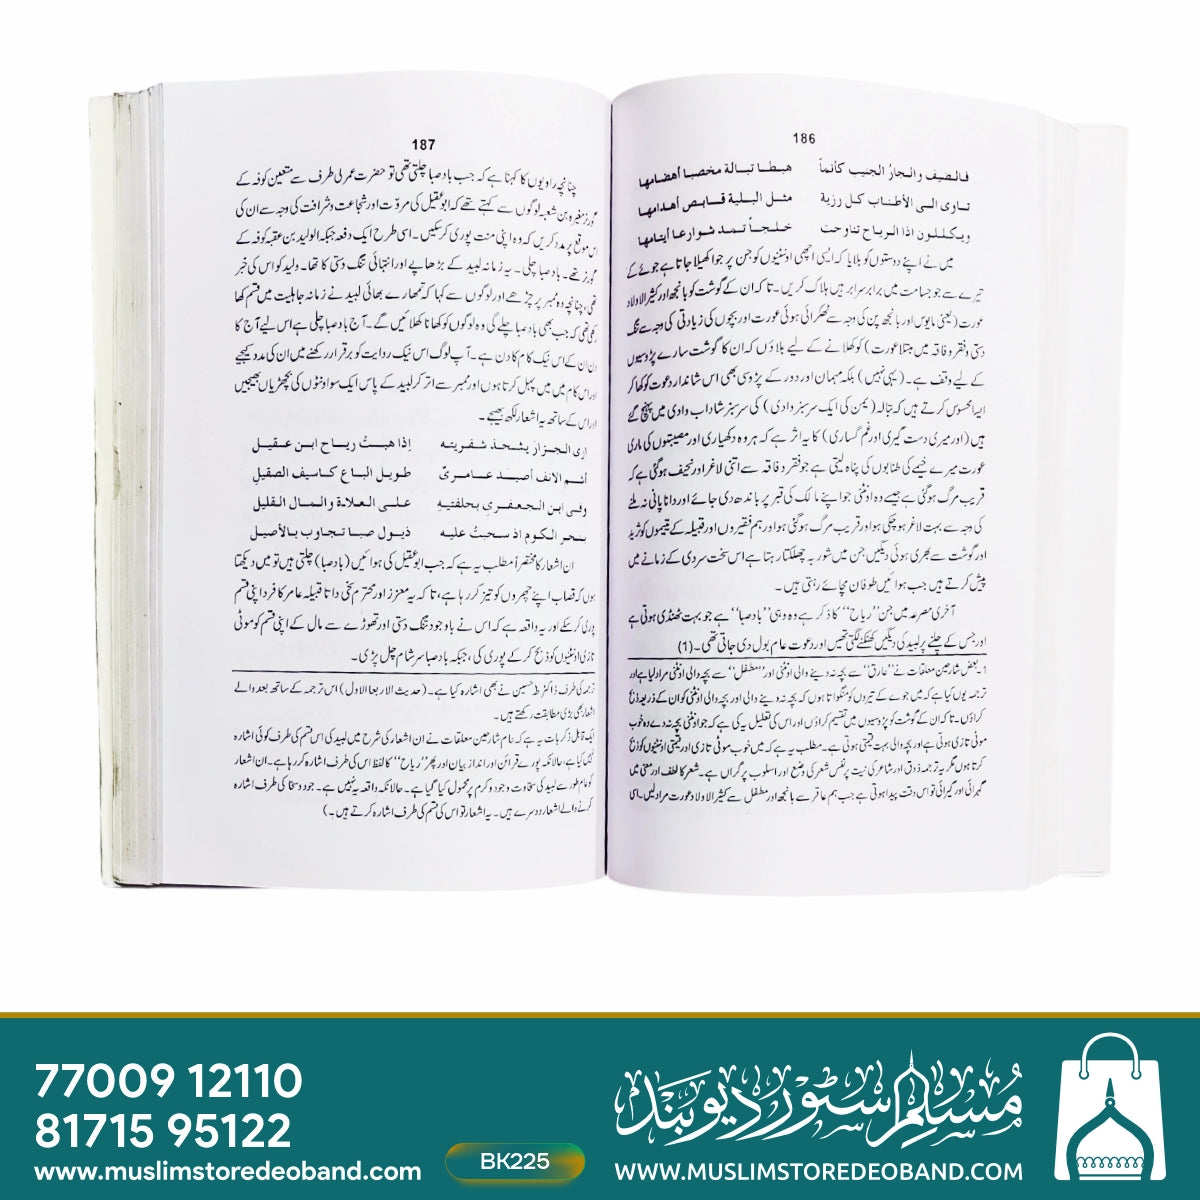 186
فالضيف والجارُ الجنيب كأنما هبطا تبالة مخصبا أهضامها
تاوى الى الأطناب كل رزية مثل البلية قابص أهدامها
ويكللون اذا الرياح تناوحت خلجاً تمد شوارعا أيتامها
میں نے اپنے دوستوں کو بلایا کہ ایسی اچھی اونٹنیوں کو جن پر جوا کھیلا جاتا ہے جوئے کے
تیرے سے جو جسامت میں برابر سرابر ہیں ہلاک کریں۔ تا کہ ان کے گوشت کو بانجھ اور کثیر الاولاد
عورت (یعنی مایوس اور بانجھ پن کی وجہ سے ٹھکرائی ہوئی عورت اور بچوں کی زیادتی کی وجہ سے تنگ
دستی و فقر و فاقہ میں مبتلا عورت) کو کھلانے کے لیے بلاؤں کہ ان کا گوشت سارے پڑوسیوں
کے لیے وقف ہے۔ (یہی نہیں) بلکہ مہمان اور دور کے پڑوسی بھی اس شاندار دعوت کو کھا کر
ایسا محسوس کرتے ہیں کہ تبالہ (یمن کی ایک سرسبز وادی) کی سرسبز شاداب وادی میں پہنچ گئے
ہیں (اور میری دست گیری اور غم گساری) کا یہ اثر ہے کہ ہر وہ دکھیاری اور مصیبتوں کی ماری
عورت میرے خیمے کی طنابوں کی پناہ لیتی ہے جو فقر و فاقہ سے اتنی لاغر اور نحیف ہو گئی ہے کہ
قریب مرگ ہو گئی ہے جیسے وہ اونٹنی جو اپنے مالک کی قبر پر باندھ دی جائے اور دانا پانی نہ ملنے
کی وجہ سے بہت لاغر ہو چکی ہو اور قریب مرگ ہو گئی ہو اور ہم فقیروں اور قبیلہ کے یتیموں کو ثرید
اور گوشت سے بھری ہوئی دیگیں جن میں شوربہ چھلکتا رہتا ہے اس سخت سردی کے زمانے میں
پیش کرتے ہیں جب ہوائیں طوفان مچائے رہتی ہیں۔
آخری مصرعہ میں جن "ریاح" کا ذکر ہے وہ وہی "باد صبا" ہے جو بہت ٹھنڈی ہوتی ہے
اور جس کے چلنے پر لبید کی دیگیں کھنکنے لگتی تھیں اور دعوت عام بول دی جاتی تھی۔ (1)
1۔ بعض شارحین معلقات نے "عارق" سے بچہ نہ دینے والی اونٹنی اور "مطفل" سے بچہ والی اونٹنی مراد لیا ہے اور
ترجمہ یوں کیا ہے کہ میں جوے کے تیروں کو منگواتا ہوں کہ بچہ نہ دینے والی اور بچہ والی اونٹنی کو ان کے ذریعہ ذبح
کراؤں۔ تا کہ ان کے گوشت کو پڑوسیوں میں تقسیم کراؤں اور اس کی تعلیل یہ کی ہے کہ جو اونٹنی بچہ نہ دے وہ خوب
موٹی تازی ہوتی ہے اور بچہ والی بہت قیمتی ہوتی ہے۔ مطلب یہ ہے کہ میں خوب موٹی تازی اور قیمتی اونٹنیوں کو ذبح
کرتا ہوں مگر یہ ترجمہ ذوق اور شاعر کی نیت پر نفس شعر کی وضع اور اسلوب پر گراں ہے۔ شعر کا لطف اور معنی میں
گہرائی اور گیرائی تو اس وقت پیدا ہوتی ہے جب ہم عاقر سے بانجھ اور مطفل سے کثیر الاولاد عورت مراد لیں۔ اسی
187
چنانچہ راویوں کا کہنا ہے کہ جب باد صبا چلتی تھی تو حضرت عمر کی طرف سے متعین کوفہ کے
گورنر مغیرہ بن شعبہ لوگوں سے کہتے تھے کہ ابو عقیل کی مروّت اور شجاعت و شرافت کی وجہ سے ان کی
اس موقع پر مدد کریں کہ وہ اپنی منت پوری کر سکیں۔ اسی طرح ایک دفعہ جبکہ الولید بن عقبہ کوفہ کے
گورنر تھے۔ باد صبا چلی۔ یہ زمانہ لبید کے بڑھاپے اور انتہائی تنگ دستی کا تھا۔ ولید کو اس کی خبر
تھی، چنانچہ وہ ممبر پر چڑھے اور لوگوں سے کہا کہ تمھارے بھائی لبید نے زمانہ جاہلیت میں قسم کھا
رکھی تھی کہ جب بھی باد صبا چلے گی وہ لوگوں کو کھانا کھلائیں گے۔ آج باد صبا چلی ہے اس لیے آج کا
دن ان کے اس نیک کام کا دن ہے۔ آپ لوگ اس نیک روایت کو برقرار رکھنے میں ان کی مدد کیجیے
اور اس کام میں میں پہل کرتا ہوں اور ممبر سے اتر کر لبید کے پاس ایک سو اونٹوں کی بچھڑیاں بھیجیں
اور اس کے ساتھ یہ اشعار لکھ بھیجے۔
ارى الجزارَ يشحذ شفرتيه إذا هبتْ رياح ابن عقيل
أشم الانف أصيد عامريّ طويل الباع كاسيف الصقيل
وفى ابن الجعفرى بحلفتيهِ على العلاة والمال القليل
بنحر الكوم اذ سحبتْ عليه ذيول صبا تجاوب بالأصيل
ان اشعار کا مختصراً مطلب یہ ہے کہ جب ابو عقیل کی ہوائیں (باد صبا) چلتی ہیں تو میں دیکھتا
ہوں کہ قصاب اپنے چھروں کو تیز کر رہا ہے، تا کہ یہ معزز اور محترم سخی داتا قبیلہ عامر کا فرد اپنی قسم
پوری کر سکے اور یہ واقعہ ہے کہ اس نے باوجود تنگ دستی اور تھوڑے سے مال کے اپنی قسم کو موٹی
تازی اونٹنیوں کو ذبح کر کے پوری کی، جبکہ باد صبا سر شام چل پڑی۔
ترجمہ کی طرف ڈاکٹر طہ حسین نے بھی اشارہ کیا ہے۔ (حدیث الاربعا الاول) اس ترجمہ کے ساتھ بعد والے
اشعار بھی بڑی مطابقت رکھتے ہیں۔
ایک قابل ذکر بات یہ ہے کہ عام شارحین معلقات نے ان اشعار کی شرح میں لبید کی اس قسم کی طرف کوئی اشارہ
نہیں کیا ہے، حالانکہ پورے قرائن اور انداز بیان اور پھر "ریاح" کا لفظ اس کی طرف اشارہ کر رہا ہے۔ ان اشعار
کو عام طور سے لبید کی سخاوت و جود و کرم پر محمول کیا گیا ہے۔ حالانکہ واقعہ یہ نہیں ہے۔ جود و سخا کی طرف اشارہ
کرنے والے اشعار دوسرے ہیں۔ یہ اشعار تو اس کی قسم کی طرف اشارہ کرتے ہیں۔)
77009 12110
81715 95122
www.muslimstoredeoband.com
BK225
مسلم سٹور دیوبند
WWW.MUSLIMSTOREDEOBAND.COM